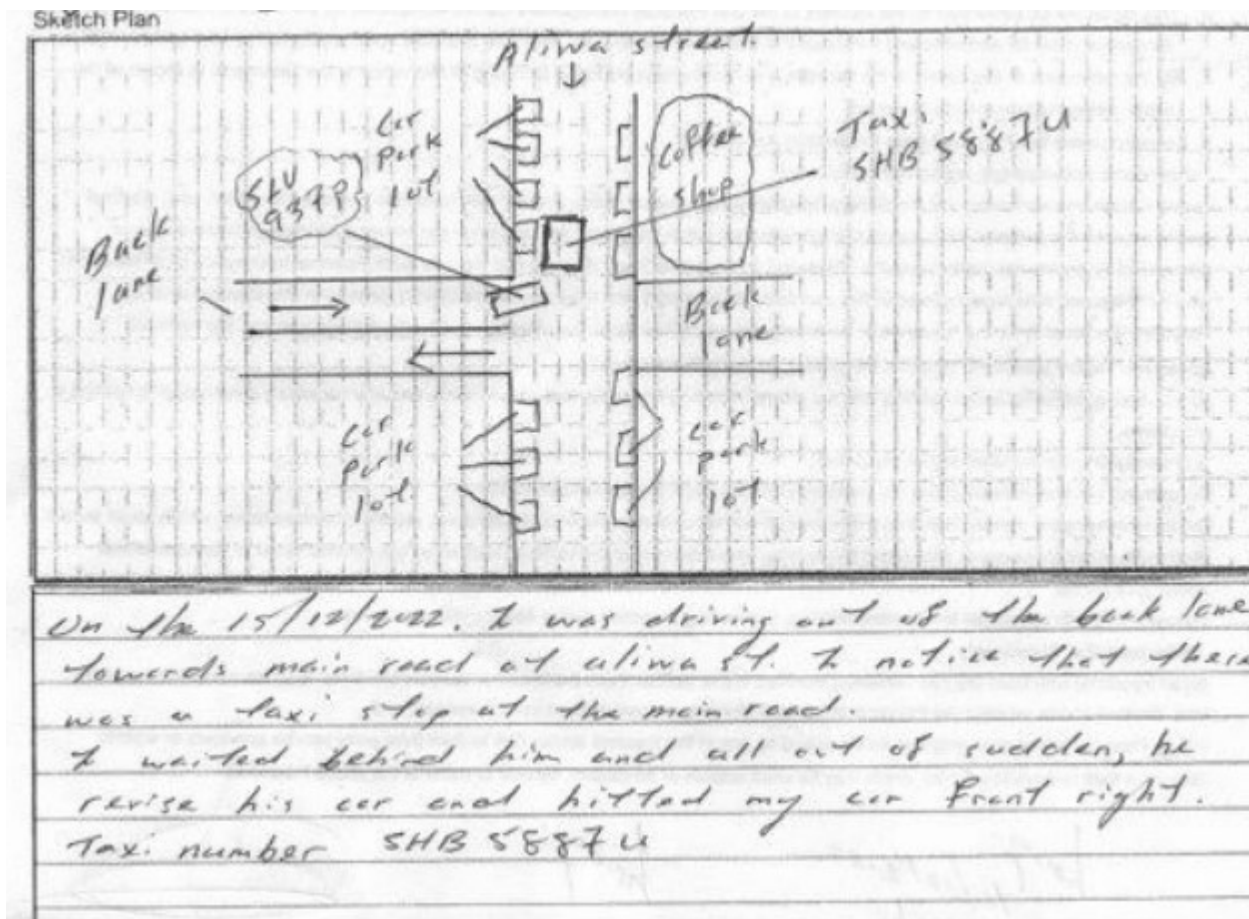 Sketch Plan
Aliwa street
Car
Park
lot
Coffee
shop
Taxi
SHB 5887U
9379P
Back
lane
Back
lane
Car
Park
lot
Car
Park
lot
On the 15/12/2022. I was driving out of the back lane
towards main road at aliwa st. I notice that there
was a taxi stop at the main road.
I waited behind him and all out of sudden, he
revise his car and hitted my car front right.
Taxi number SHB 5887U